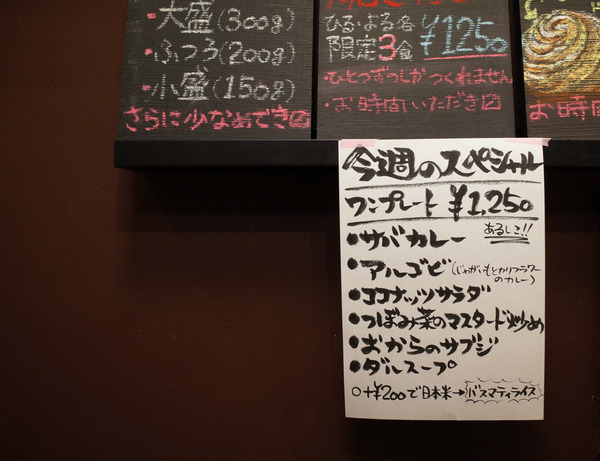 ・大盛(300g)
・ふつう(200g)
・小盛(150g)
さらに少なめでき〼
ひる・よる各
限定3食
¥1250
・ひとつずつしかつくれません
・お時間いただき〼
お時間
今週のスペシャル
ワンプレート ¥1,250
●サバカレー あるしこ!!
●アルゴビ(じゃがいもとカリフラワーのカレー)
●ココナッツサラダ
●つぼみ菜のマスタード炒め
●おからのサブジ
●ダルスープ
○+¥200で日本米→バスマティライス